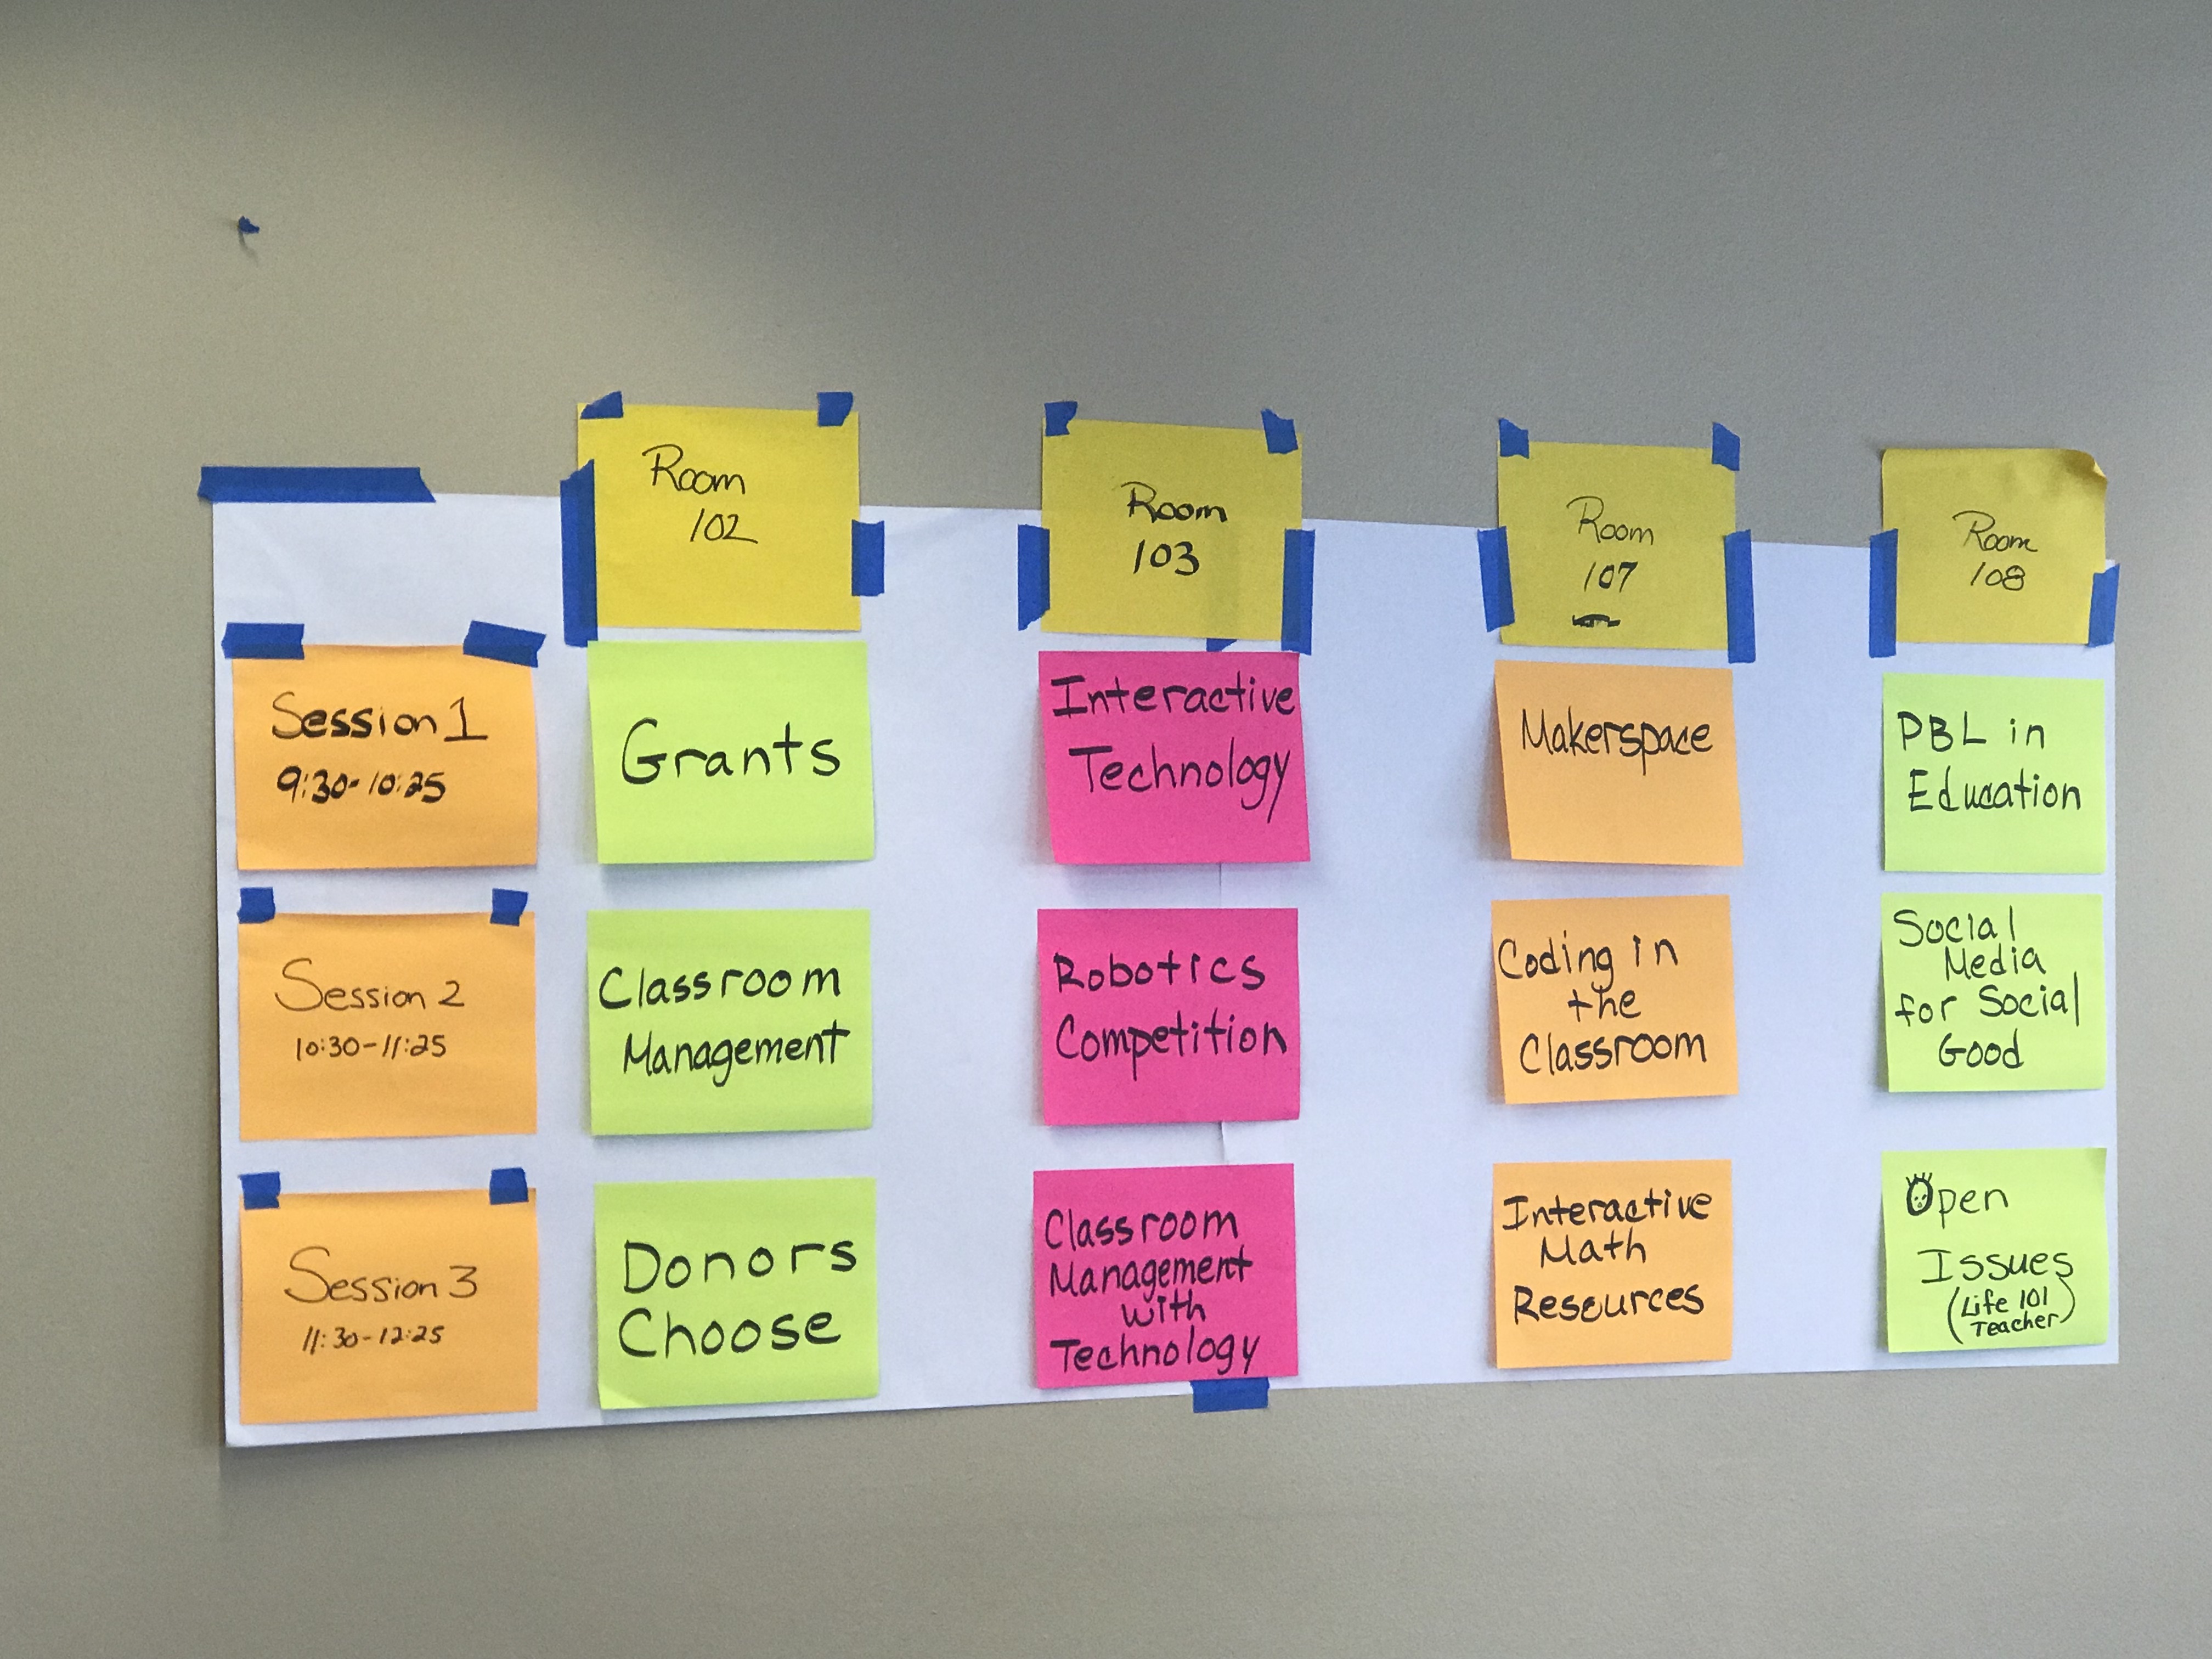 Room
102
Room
103
Room
107
Room
108
Session 1
9:30-10:25
Grants
Interactive
Technology
Makerspace
PBL in
Education
Session 2
10:30-11:25
Classroom
Management
Robotics
Competition
Coding in
the
Classroom
Social
Media
for Social
Good
Session 3
11:30-12:25
Donors
Choose
Classroom
Management
with
Technology
Interactive
Math
Resources
Open
Issues
(Life 101
Teacher)